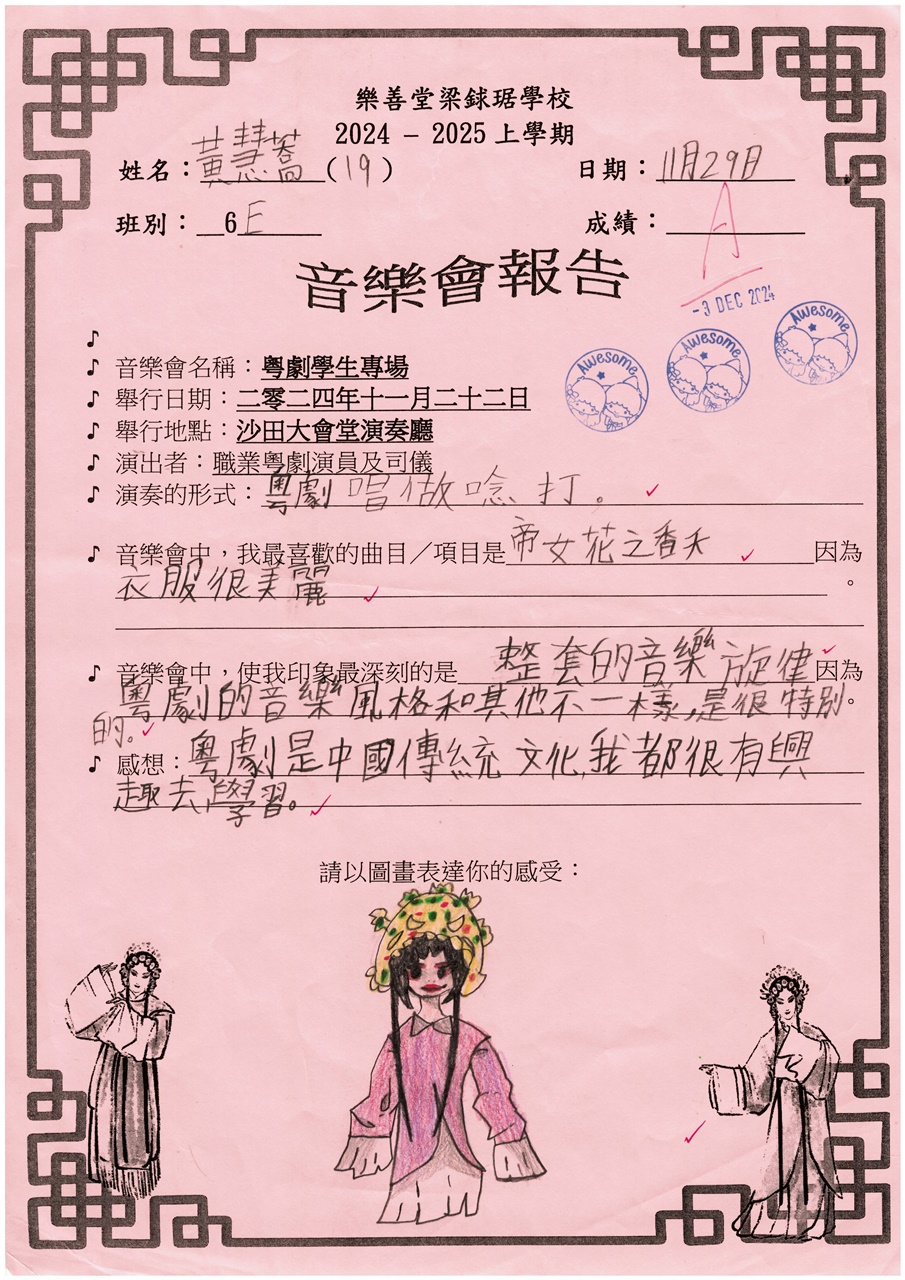 樂善堂梁銶琚學校
2024 – 2025 上學期
姓名：黃慧喬(19) 日期：11月29日
班別：6E 成績：A
音樂會報告
-3 DEC 2024
Awesome Awesome Awesome
♪
♪ 音樂會名稱：粵劇學生專場
♪ 舉行日期：二零二四年十一月二十二日
♪ 舉行地點：沙田大會堂演奏廳
♪ 演出者：職業粵劇演員及司儀
♪ 演奏的形式：粵劇 唱做唸打。
♪ 音樂會中，我最喜歡的曲目／項目是帝女花之香夭因為
衣服很美麗。
♪ 音樂會中，使我印象最深刻的是 整套的音樂旋律因為
粵劇的音樂風格和其他不一樣,是很特別。
的。
♪ 感想：粵劇是中國傳統文化,我都很有興
趣去學習。
請以圖畫表達你的感受：